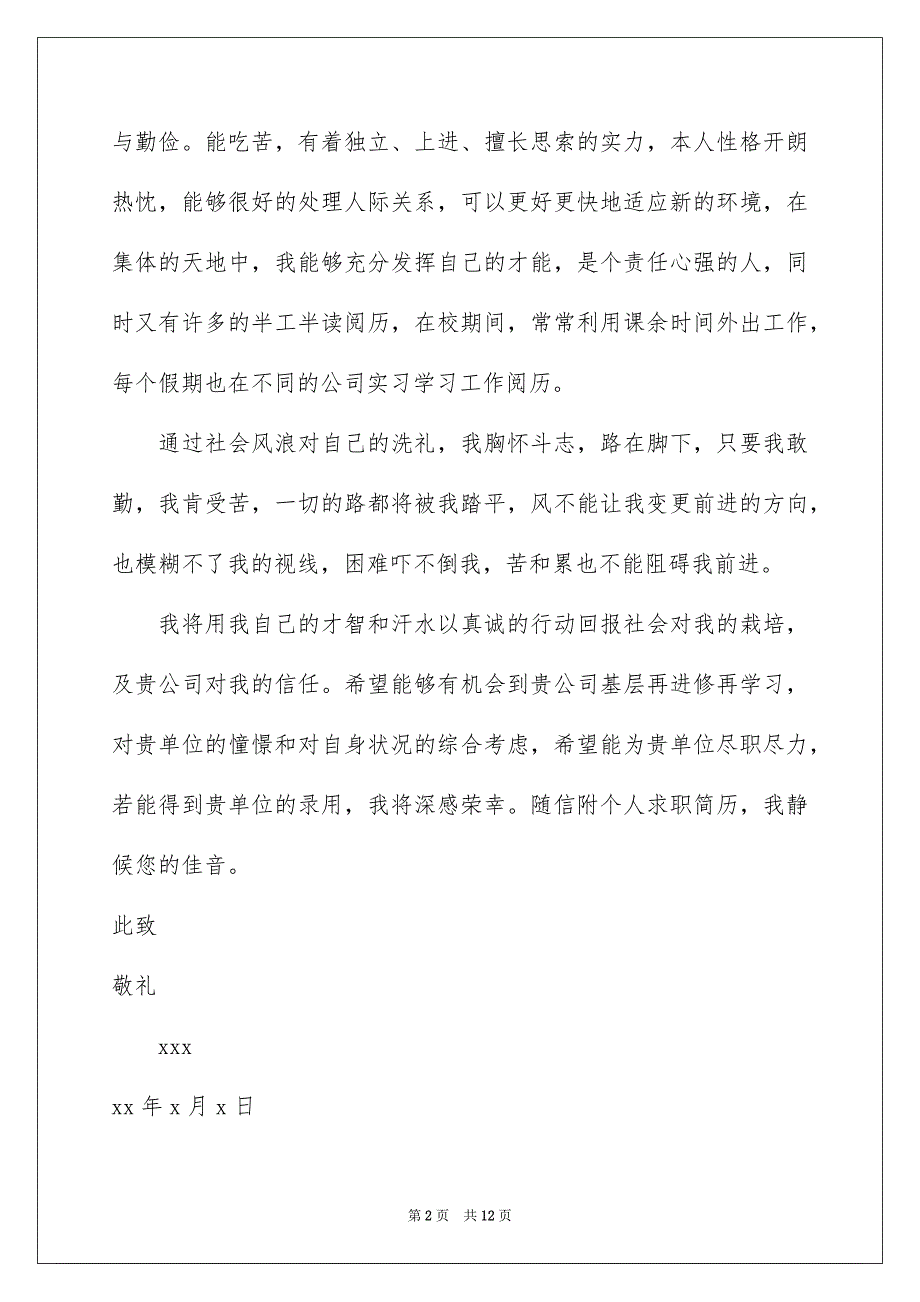 与勤俭。能吃苦，有着独立、上进、擅长思索的实力，本人性格开朗
热忱，能够很好的处理人际关系，可以更好更快地适应新的环境，在
集体的天地中，我能够充分发挥自己的才能，是个责任心强的人，同
时又有许多的半工半读阅历，在校期间，常常利用课余时间外出工作，
每个假期也在不同的公司实习学习工作阅历。
通过社会风浪对自己的洗礼，我胸怀斗志，路在脚下，只要我敢
勤，我肯受苦，一切的路都将被我踏平，风不能让我变更前进的方向，
也模糊不了我的视线，困难吓不倒我，苦和累也不能阻碍我前进。
我将用我自己的才智和汗水以真诚的行动回报社会对我的栽培，
及贵公司对我的信任。希望能够有机会到贵公司基层再进修再学习，
对贵单位的憧憬和对自身状况的综合考虑，希望能为贵单位尽职尽力，
若能得到贵单位的录用，我将深感荣幸。随信附个人求职简历，我静
候您的佳音。
此致
敬礼
xxx
xx 年 x 月 x 日
第 2 页 共 12 页